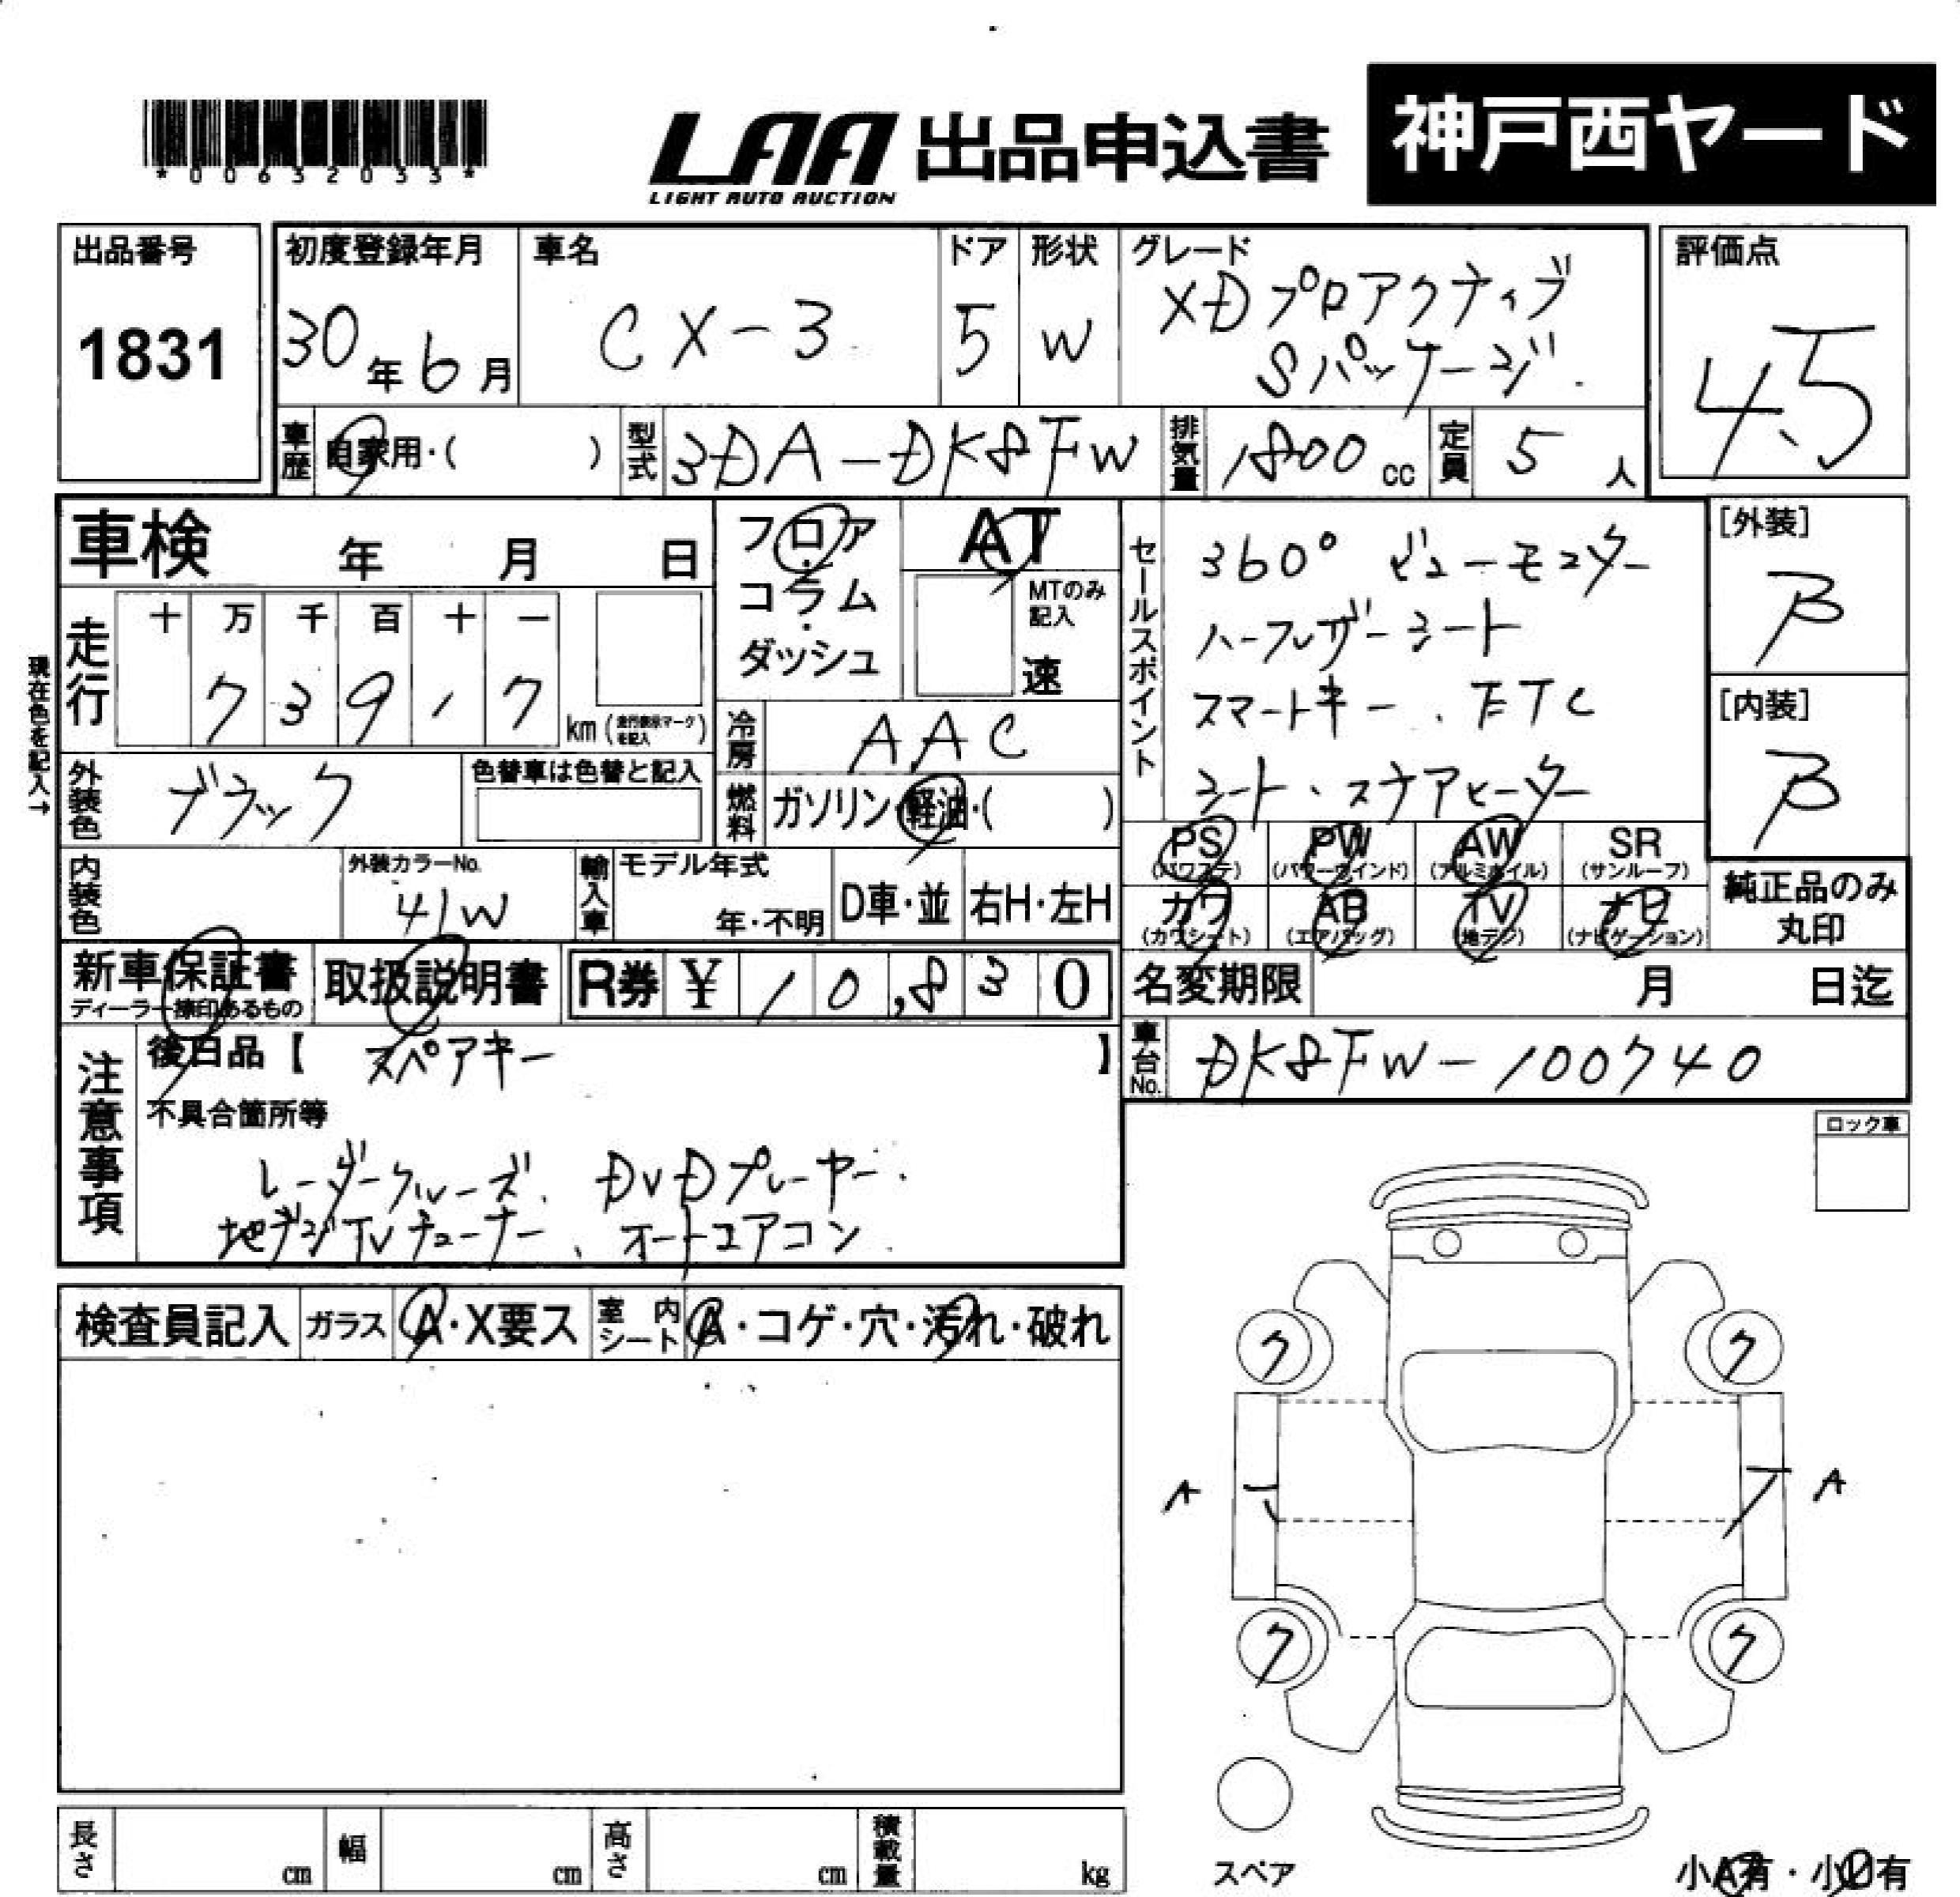 *00632033*
LAA 出品申込書 神戸西ヤード
LIGHT AUTO AUCTION
出品番号
1831
初度登録年月
30年6月
車名
CX-3
ドア
5
形状
W
グレード
XDプロアクティブ
Sパッケージ
評価点
4.5
車歴 自家用・( )
型式 3DA-DK8FW
排気量 1800cc
定員 5人
車検 年 月 日
フロア・コラム・ダッシュ
AT
MTのみ記入
速
セールスポイント
360°ビューモニター
ハーフレザーシート
スマートキー、ETC
シート、ステアヒーター
[外装]
B
[内装]
B
現在色を記入→
走行
十 万 千 百 十 一
7 3 9 1 7
km(走行表示マークを記入)
冷房 AAC
燃料 ガソリン・軽油・( )
外装色 ブラック
色替車は色替と記入
内装色
外装カラーNo.
41W
輸入車
モデル年式
年・不明
D車・並
右H・左H
PS (パワステ)
PW (パワーウインド)
AW (アルミホイル)
SR (サンルーフ)
カワ (カワシート)
AB (エアバッグ)
TV (地デジ)
ナビ (ナビゲーション)
純正品のみ
丸印
新車保証書
ディーラー捺印あるもの
取扱説明書
R券 ¥10,830
名変期限 月 日迄
車台No. DK8FW-100740
注意事項
後日品【 スペアキー 】
不具合箇所等
レーダークルーズ、DVDプレーヤー、
地デジTVチューナー、オートエアコン
ロック車
検査員記入
ガラス A・X要ス
室内シート A・コゲ・穴・汚れ・破れ
ク ク
A A
ク ク
スペア
長さ cm
幅 cm
高さ cm
積載量 kg
小A有・小U有